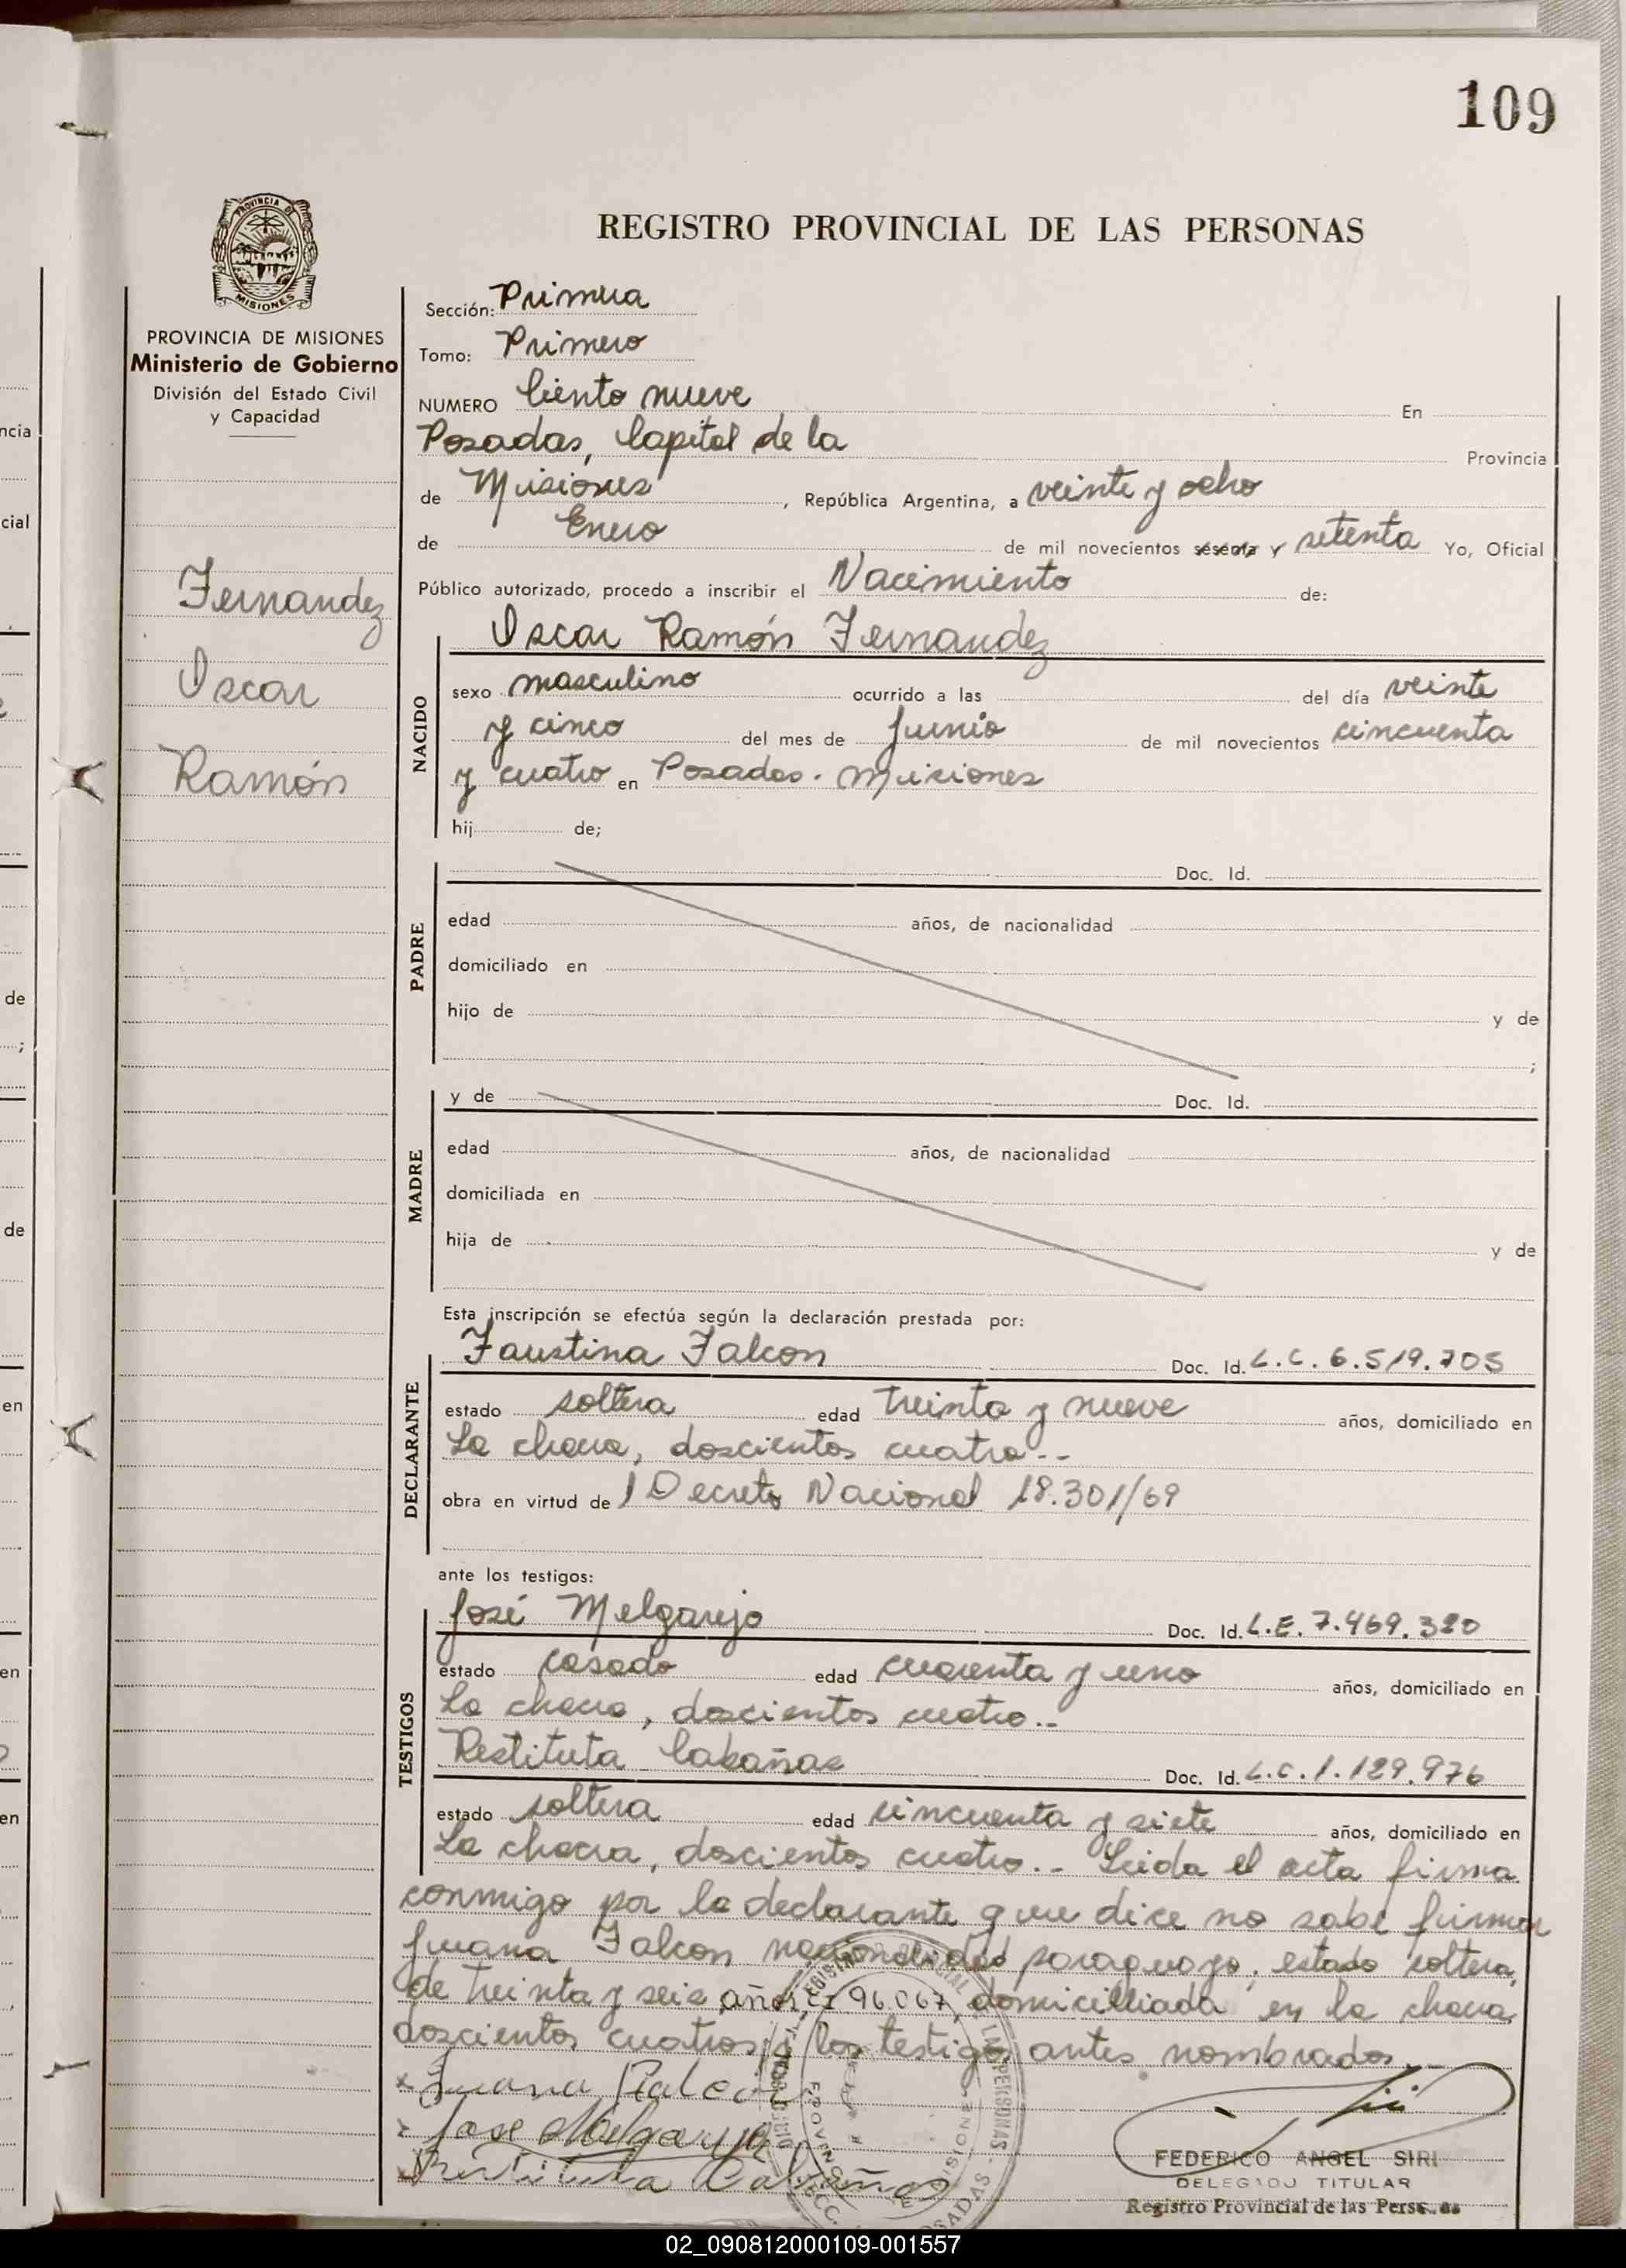 109
REGISTRO PROVINCIAL DE LAS PERSONAS
PROVINCIA DE MISIONES
Ministerio de Gobierno
División del Estado Civil
y Capacidad
Fernandez
Oscar
Ramón
Sección: Primera
Tomo: Primero
NUMERO Ciento nueve En
Posadas, Capital de la Provincia
de Misiones, República Argentina, a veinte y ocho
de Enero de mil novecientos sesenta y setenta Yo, Oficial
Público autorizado, procedo a inscribir el Nacimiento de:
NACIDO
Oscar Ramón Fernandez
sexo masculino ocurrido a las del día veinte
y cinco del mes de Junio de mil novecientos cincuenta
y cuatro en Posadas. Misiones
hij de;
PADRE
Doc. Id.
edad años, de nacionalidad
domiciliado en
hijo de y de
;
MADRE
y de Doc. Id.
edad años, de nacionalidad
domiciliada en
hija de y de
Esta inscripción se efectúa según la declaración prestada por:
DECLARANTE
Faustina Falcon Doc. Id. L.C. 6.519.705
estado soltera edad treinta y nueve años, domiciliado en
La chacra, doscientos cuatro.--
obra en virtud de Decreto Nacional 18.301/69
ante los testigos:
TESTIGOS
José Melgarejo Doc. Id. L.E. 7.469.320
estado casado edad cuarenta y uno años, domiciliado en
La chacra, doscientos cuatro.--
Restituta Cabañas Doc. Id. L.C. 1.129.976
estado soltera edad cincuenta y siete años, domiciliado en
La chacra, doscientos cuatro.-- Leida el acta firma
conmigo por la declarante que dice no sabe firmar
Juana Falcon nacionalidad paraguaya, estado soltera,
de treinta y seis años 96.067, domicilliada en la chacra
doscientos cuatros los testigos antes nombrados.
x Juana Falcon
x Jose Melgarejo
x Restituta Cabañas
FEDERICO ANGEL SIRI
DELEGADO TITULAR
Registro Provincial de las Personas
02_090812000109-001557